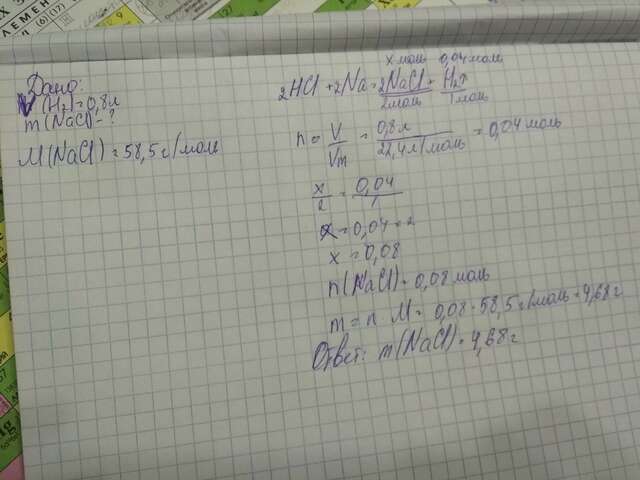 Дано:
V(H₂)=0,8л
m(NaCl)-?
M(NaCl)=58,5 г/моль
x моль 0,04 моль
2HCl+2Na=2NaCl+H₂↑
2моль 1моль
n = V/Vm = 0,8л/22,4л/моль = 0,04 моль
x/2 = 0,04/1
x=0,04·2
x=0,08
n(NaCl)=0,08 моль
m=n·M=0,08·58,5 г/моль=4,68г
Ответ: m(NaCl)=4,68г